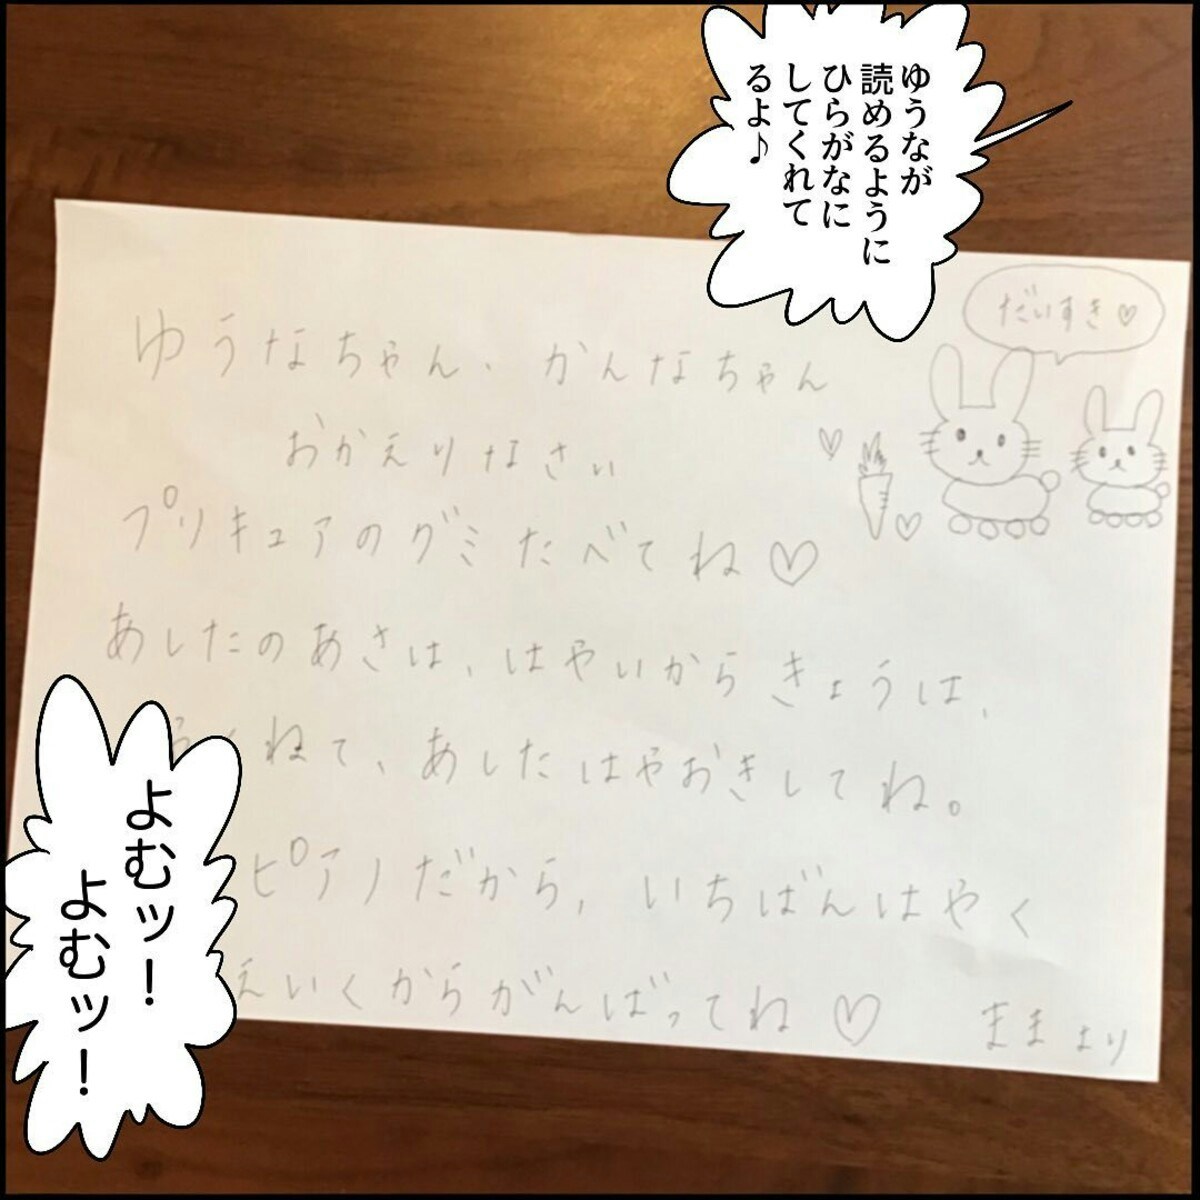 ゆうなが
読めるように
ひらがなに
してくれて
るよ♪
だいすき♡
ゆうなちゃん、かんなちゃん
おかえりなさい
プリキュアのグミたべてね♡
あしたのあさは、はやいからきょうは、
やくねて、あしたはやおきしてね。
ピアノだから、いちばんはやく
えいくからがんばってね♡
ままより
よむッ!
よむッ!